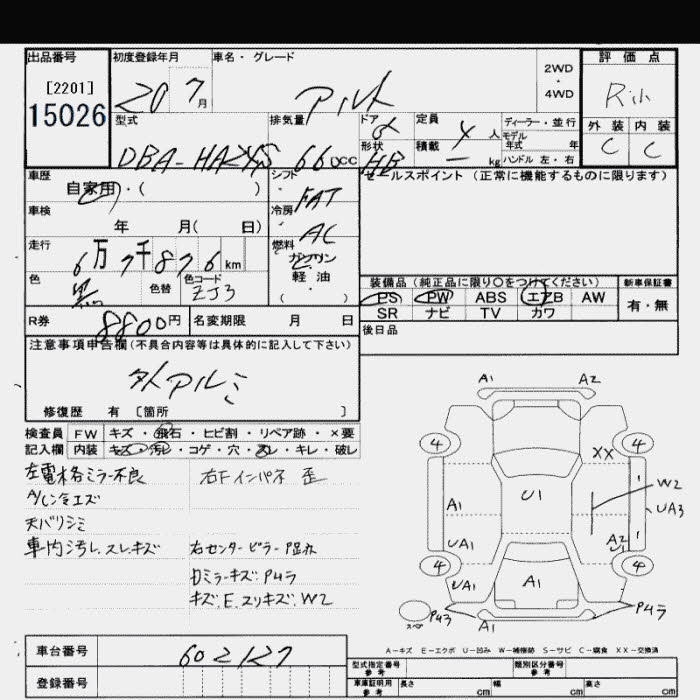 出品番号 初度登録年月 車名・グレード 2WD・4WD 評価点
[2201]
15026
20 7月 アルト
外装 内装
C C
型式 排気量 ドア 形状 定員 積載 ディーラー・並行 モデル年式 年 ハンドル 左・右
660cc HB 4人 ー kg
車歴 自家用・( ) シフト FAT セールスポイント(正常に機能するものに限ります)
車検 年 月( 日) 冷房 AC
走行 6万7千876km 燃料 ガソリン 軽油 ( )
色 黒 色替 色コード ZJ3
装備品(純正品に限り○をつけてください) 新車保証書
PS PW ABS エアB AW 有・無
SR ナビ TV カワ
R券 8800円 名変期限 月 日 後日品
注意事項申告欄(不具合内容等は具体的に記入して下さい)
社外アルミ
修復歴 有 [箇所 ]
検査員 FW キズ・飛石・ヒビ割・リペア跡・×要
記入欄 内装 キズ・汚レ・コゲ・穴・スレ・キレ・破レ
左電格ミラー不良 右Fインパネ 歪
A/Cシミエズ
天バリシミ
車内汚レ.スレ.キズ 右センターピラー
キズ.E.スリキズ.W2
A1 A2
4 4
XX
W2
A1 U1 UA3
UA1 A2
U1
4 4
UA1 A1
A1
A-キズ E-エクボ U-凹み W-補修跡 S-サビ C-腐食 XX-交換済
車台番号 602127 型式指定番号 参考 類別区分番号 参考
登録番号 車庫証明用 参考 長さ cm 幅 cm 高さ cm